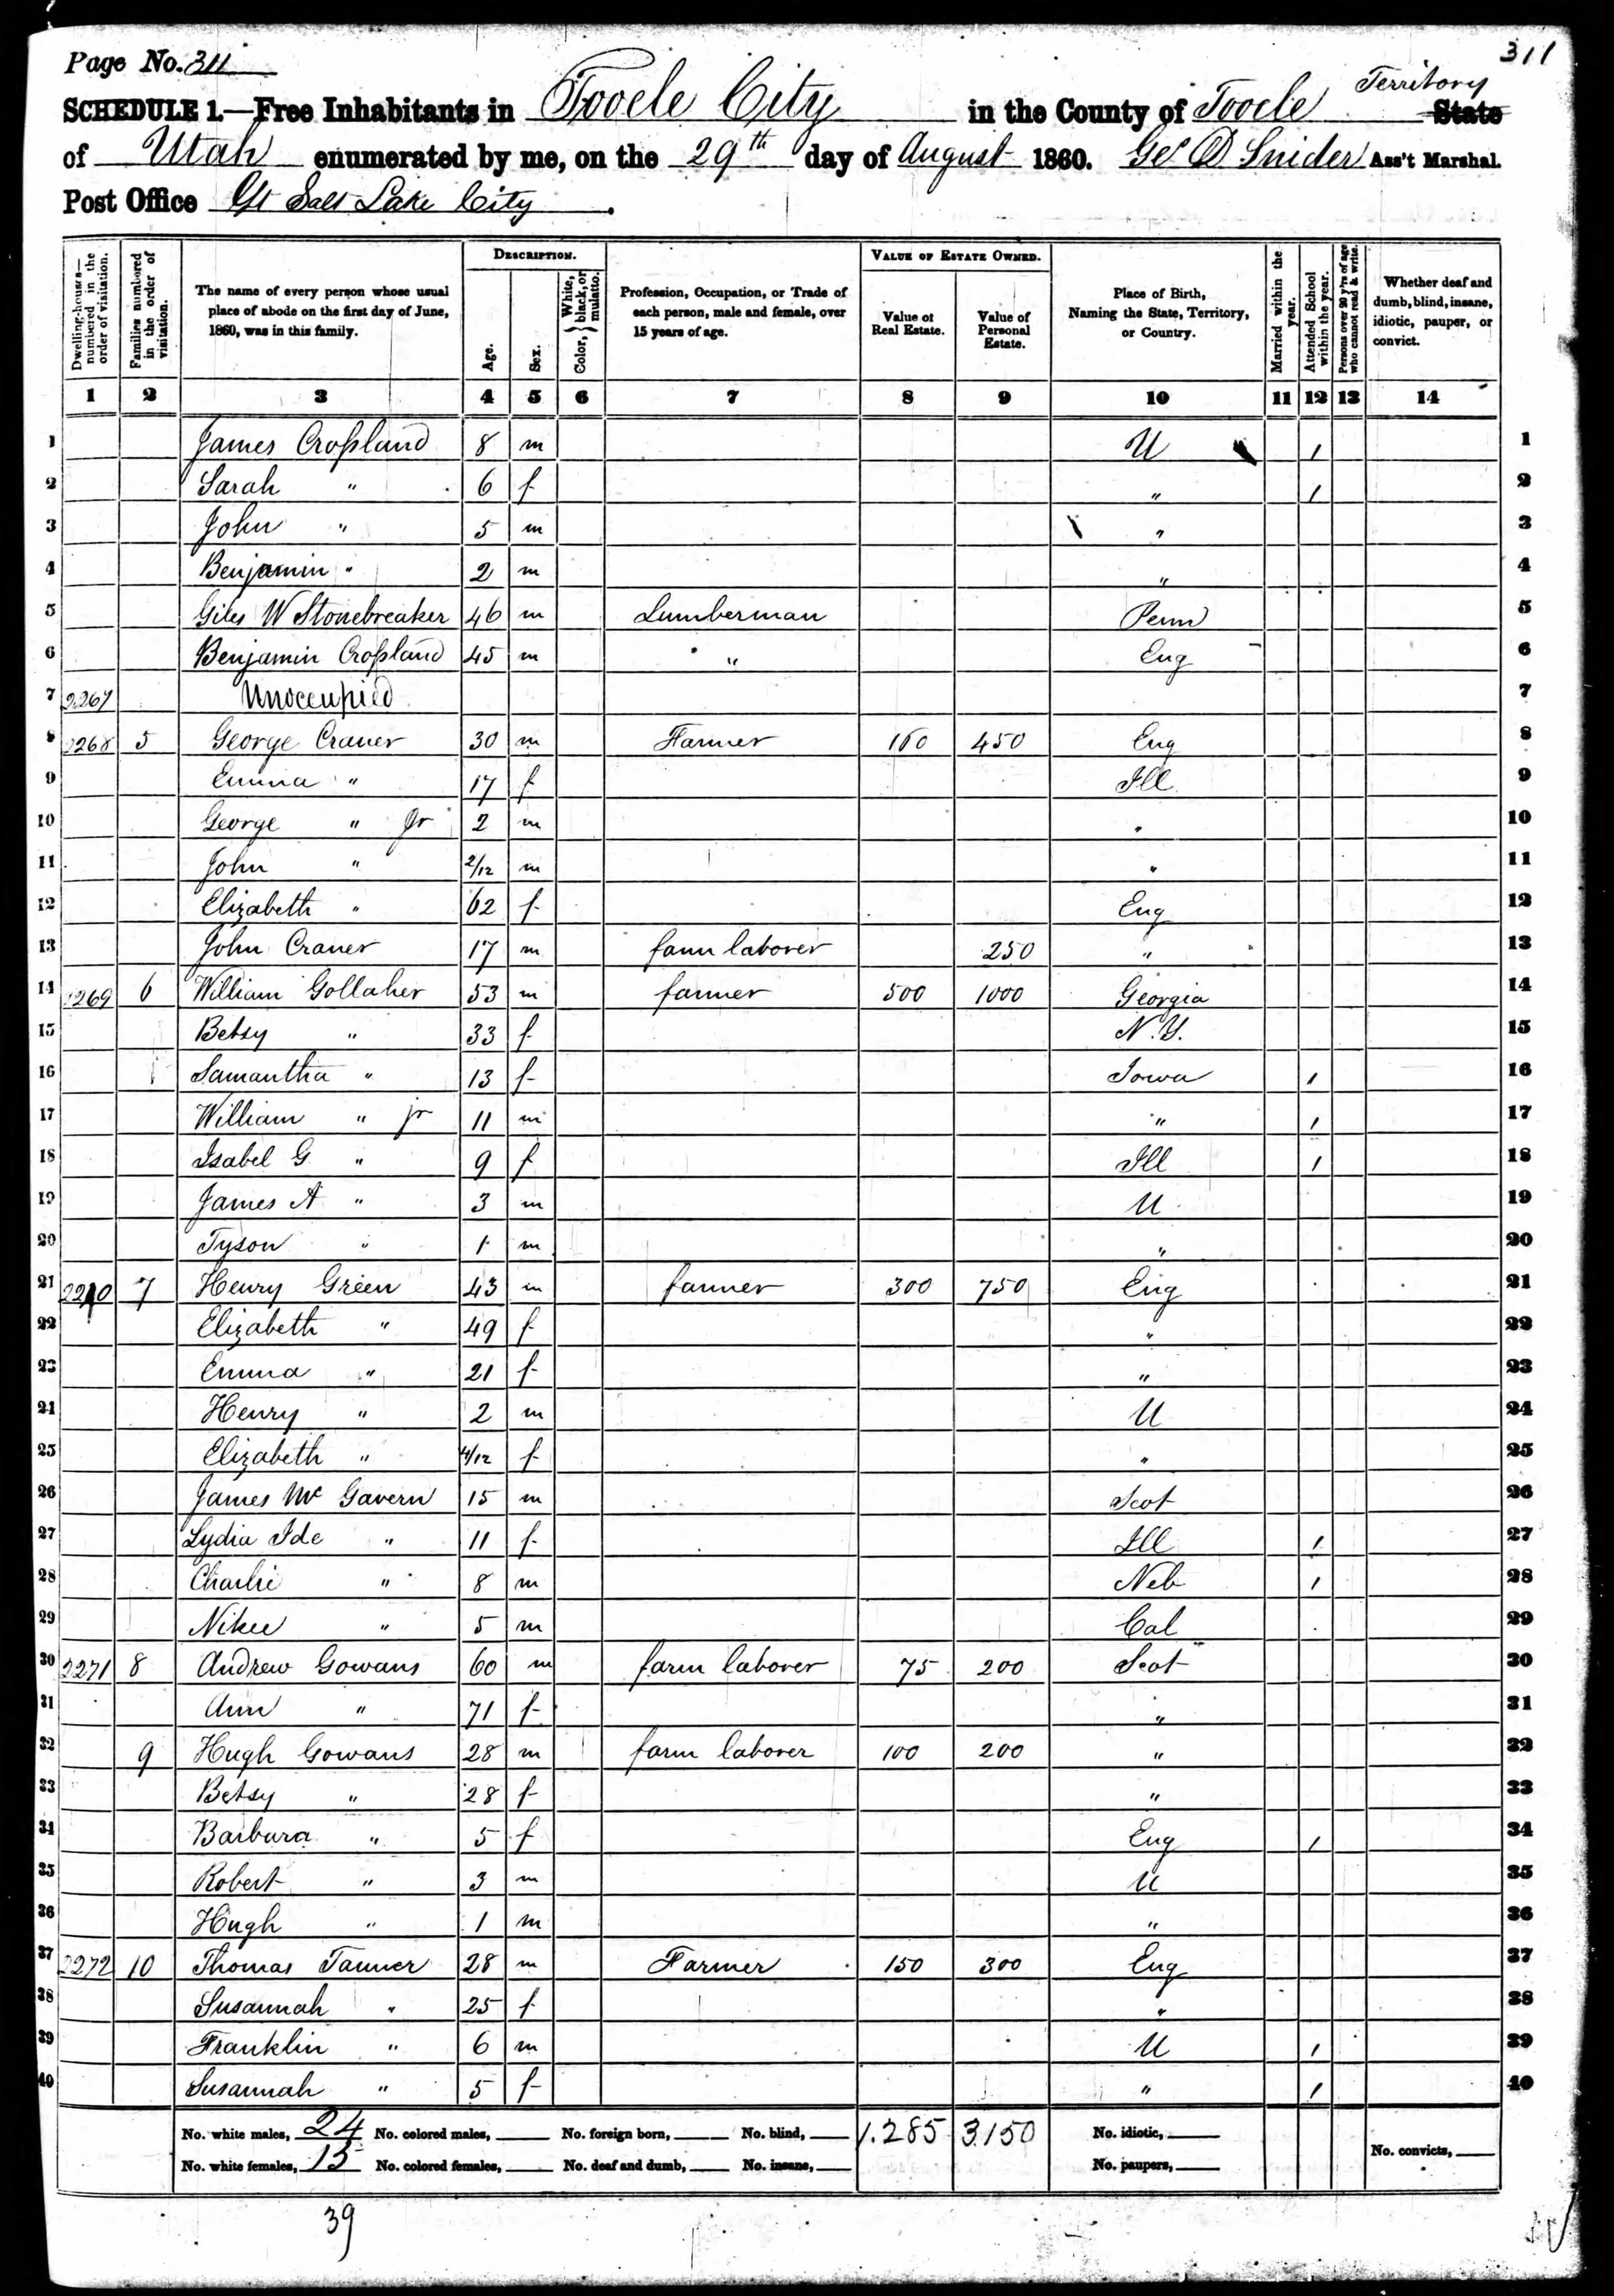 311
Page No. 311
Territory
SCHEDULE 1.—Free Inhabitants in Tooele City in the County of Tooele State
of Utah enumerated by me, on the 29th day of August 1860. Geo D Snider Ass't Marshal.
Post Office Gt Salt Lake City.
Dwelling-houses—numbered in the order of visitation.
Families numbered in the order of visitation.
The name of every person whose usual place of abode on the first day of June, 1860, was in this family.
DESCRIPTION.
Age.
Sex.
Color, } White, black, or mulatto.
Profession, Occupation, or Trade of each person, male and female, over 15 years of age.
VALUE OF ESTATE OWNED.
Value of Real Estate.
Value of Personal Estate.
Place of Birth, Naming the State, Territory, or Country.
Married within the year.
Attended School within the year.
Persons over 20 y'rs of age who cannot read & write.
Whether deaf and dumb, blind, insane, idiotic, pauper, or convict.
1 2 3 4 5 6 7 8 9 10 11 12 13 14
1 James Croſsland 8 m U / 1
2 Sarah " 6 f " / 2
3 John " 5 m " 3
4 Benjamin " 2 m " 4
5 Giles W Stonebreaker 46 m Lumberman Penn 5
6 Benjamin Croſsland 45 m " Eng 6
7 2267 Unoccupied 7
8 2268 5 George Craner 30 m Farmer 160 450 Eng 8
9 Emma " 17 f Ill 9
10 George " Jr 2 m " 10
11 John " 2/12 m " 11
12 Elizabeth " 62 f Eng 12
13 John Craner 17 m farm laborer 250 " 13
14 2269 6 William Gollaher 53 m farmer 500 1000 Georgia 14
15 Betsy " 33 f N.Y. 15
16 Samantha " 13 f Iowa / 16
17 William " jr 11 m " / 17
18 Isabel G " 9 f Ill / 18
19 James A " 3 m U 19
20 Tyson " 1 m " 20
21 2270 7 Henry Green 43 m farmer 300 750 Eng 21
22 Elizabeth " 49 f " 22
23 Emma " 21 f " 23
24 Henry " 2 m U 24
25 Elizabeth " 4/12 f " 25
26 James Mc Gavern 15 m Scot 26
27 Lydia Ide " 11 f Ill / 27
28 Charlie " 8 m Neb / 28
29 " 5 m Cal 29
30 2271 8 Andrew Gowans 60 m farm laborer 75 200 Scot 30
31 Ann " 71 f " 31
32 9 Hugh Gowans 28 m farm laborer 100 200 " 32
33 Betsy " 28 f " 33
34 Barbara " 5 f Eng / 34
35 Robert " 3 m U 35
36 Hugh " 1 m " 36
37 2272 10 Thomas Tanner 28 m Farmer 150 300 Eng 37
38 Susannah " 25 f " 38
39 Franklin " 6 m U / 39
40 Susannah " 5 f " / 40
No. white males, 24 No. colored males, No. foreign born, No. blind, 1.285 3.150 No. idiotic,
No. white females, 15 No. colored females, No. deaf and dumb, No. insane, No. paupers, No. convicts,
39